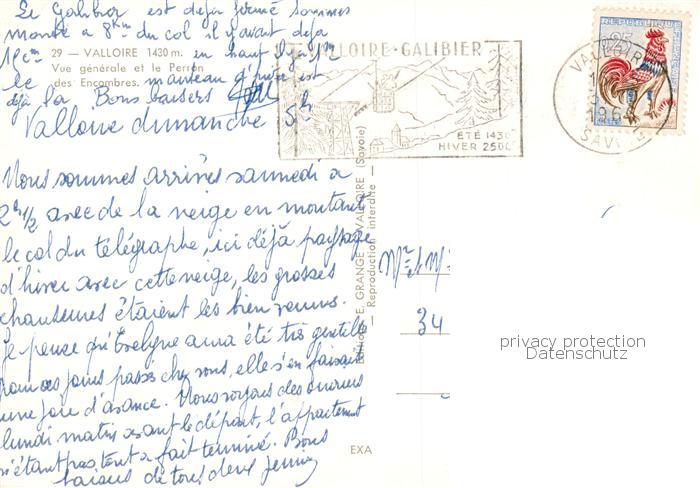 Le Galibier est déjà fermé sommes
monté a 8Km du col il y avait déja
1cm en haut il y a 1m
29 - VALLOIRE 1430 m.
Vue générale et le Perron
des Encombres.
le manteau d' est
déja la Bons baisers
Valloire dimanche 5h
Nous sommes arrivés samedi a
2h1/2 avec de la neige en montant
le col du télégraphe, ici déjà paysage
d'hiver avec cette neige, les grosses
chaussures étaient les bien venues.
Je pense qu'Evelyne aura été très gentille
pour ces jours passés chez vous, elle s'en faisait
une joie d'avance. Nous voyons des
lundi matin avant le départ, l'appartement
n'étant pas tout a fait terminé. Bons
baisers de tous deux
VALLOIRE-GALIBIER
ETÉ 1430
HIVER 2500
VALLOIRE
SAVOIE
REPUBLIQUE FRANCAISE
0,25
Editions E. GRANGE - VALLOIRE (Savoie)
— Reproduction interdite —
Mr et M
34
privacy protection
Datenschutz
EXA